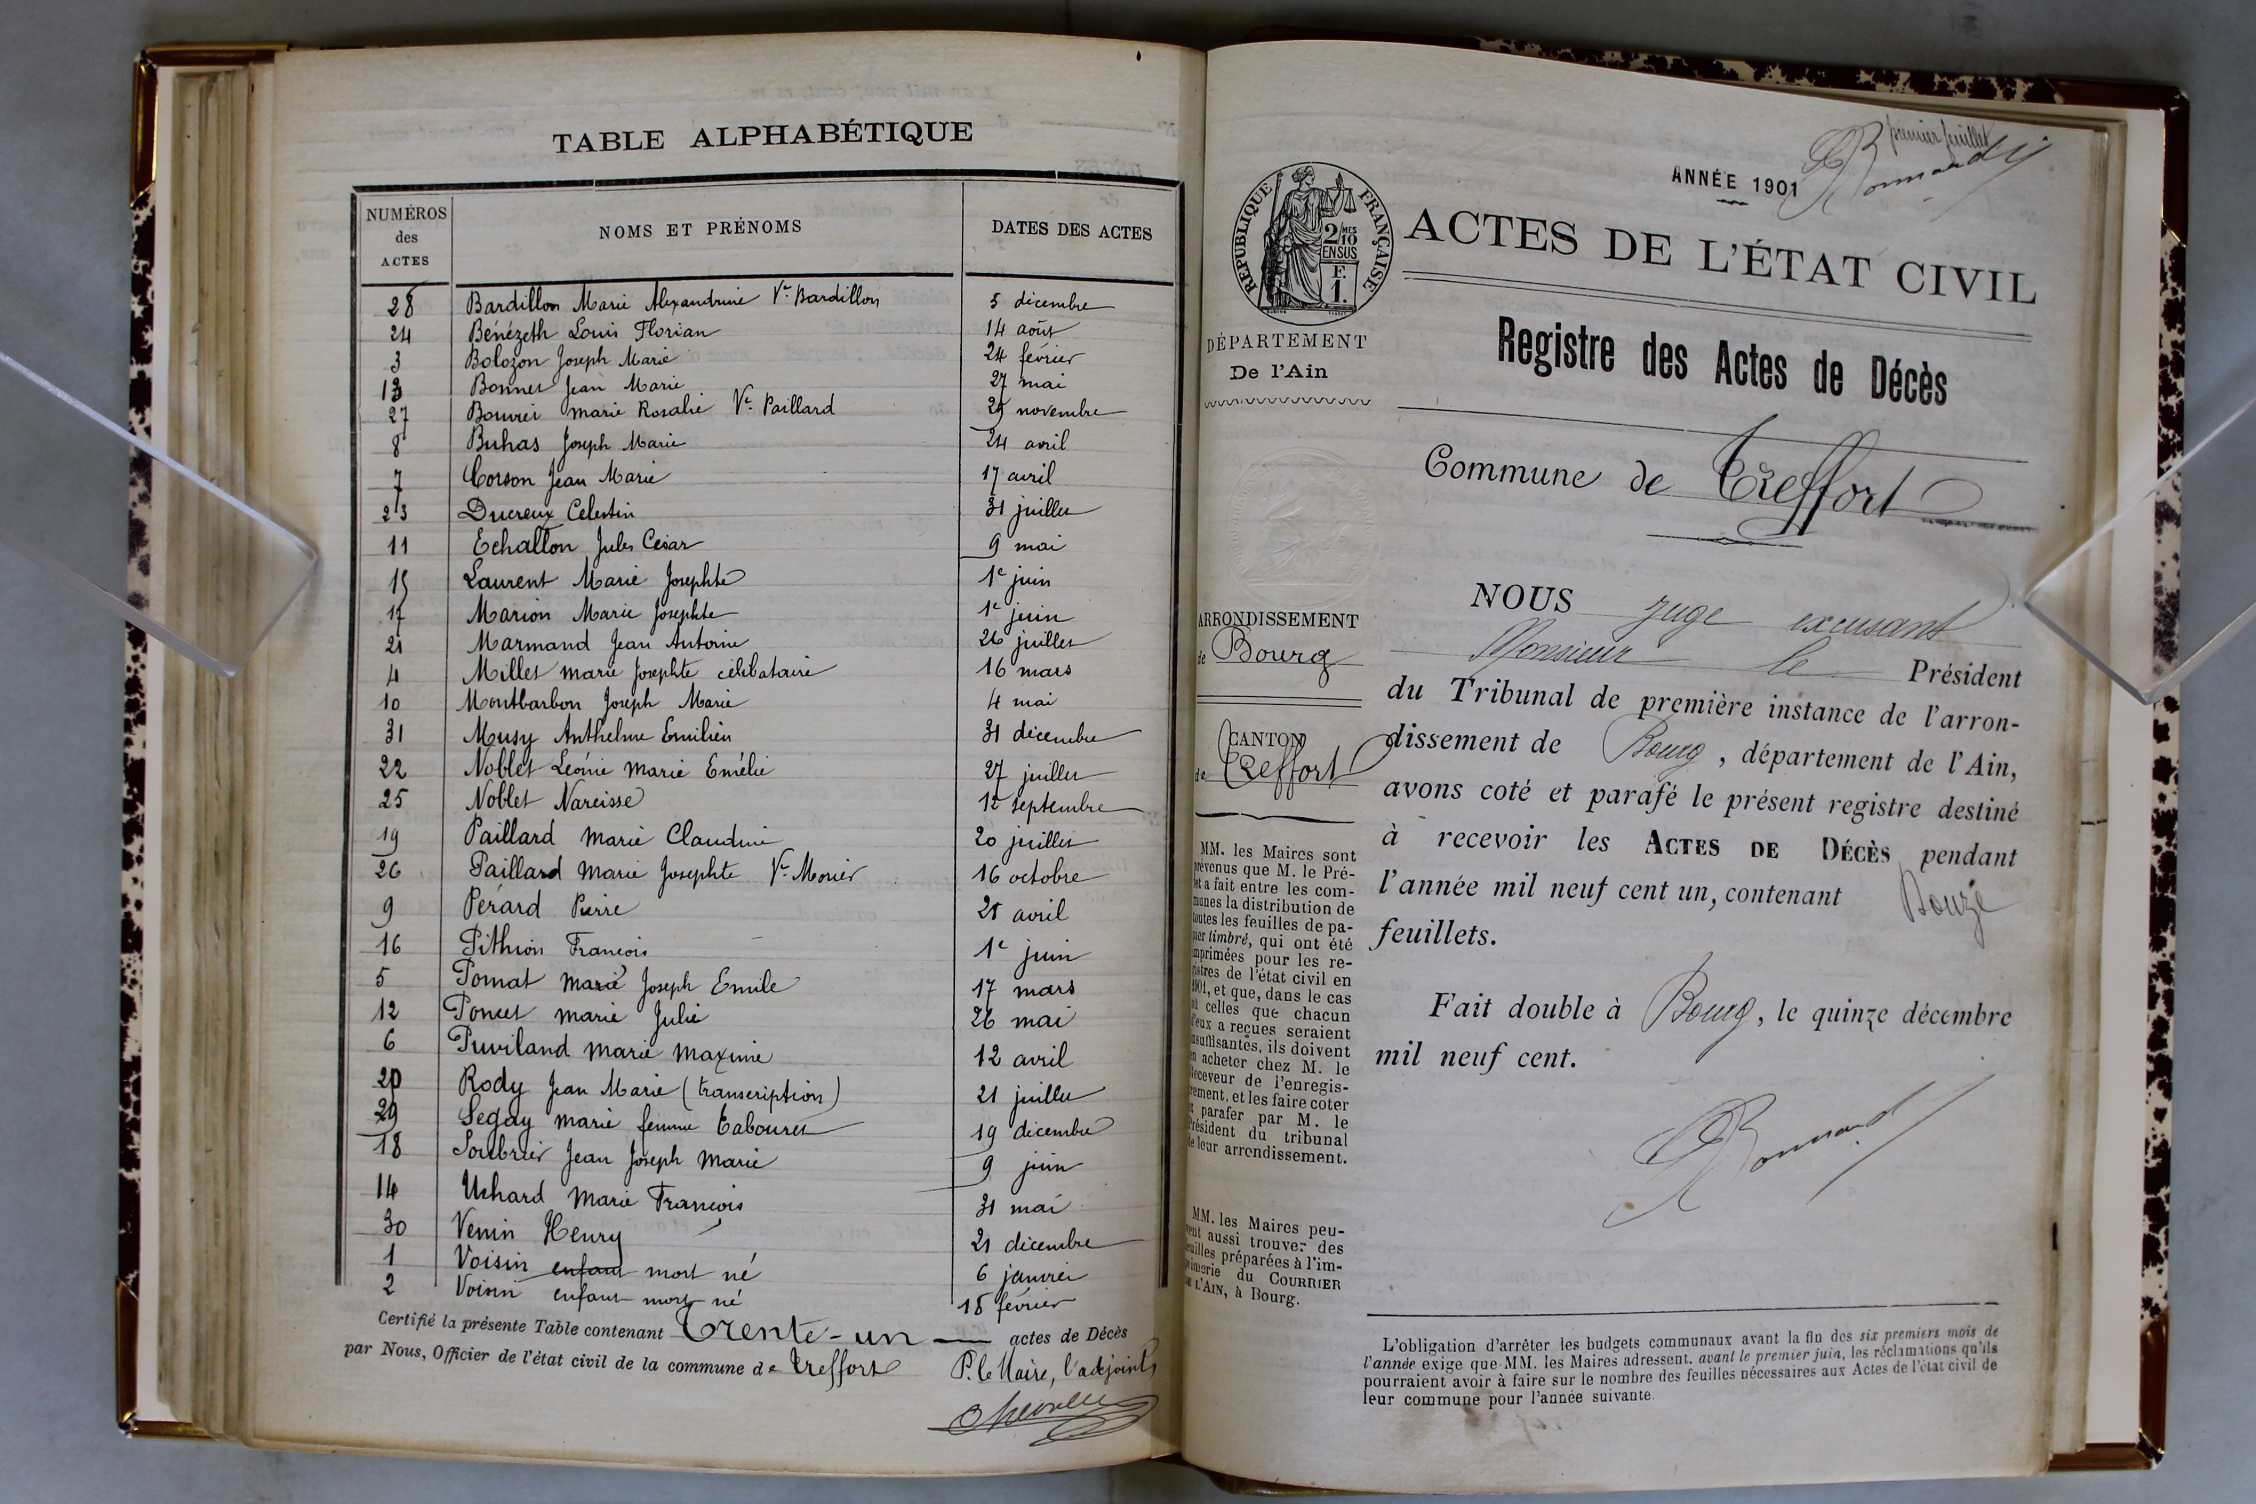 TABLE ALPHABÉTIQUE
NUMÉROS des ACTES NOMS ET PRÉNOMS DATES DES ACTES
28 Bardillon Marie Alexandrine Ve Bardillon 5 décembre
24 Bénézeth Louis Florian 14 août
3 Bolozon Joseph Marie 24 février
13 Bonnet Jean Marie 27 mai
27 Bouvier Marie Rosalie Ve Paillard 29 novembre
8 Buhas Joseph Marie 24 avril
7 Corson Jean Marie 17 avril
23 Ducreux Celestin 31 juillet
11 Echallon Jules César 9 mai
15 Laurent Marie Josephte 1e juin
17 Marion Marie Josephte 1e juin
21 Marmand Jean Antoine 26 juillet
4 Millet marie Josephte célibataire 16 mars
10 Montbarbon Joseph Marie 4 mai
31 Musy Anthelme Emilien 31 décembre
22 Noblet Léonie Marie Emélie 27 juillet
25 Noblet Narcisse 12 septembre
19 Paillard Marie Claudine 20 juillet
26 Paillard Marie Josephte Ve Monier 16 octobre
9 Pérard Pierre 28 avril
16 Pithion François 1e juin
5 Pomat Marie Joseph Emile 17 mars
12 Poncet Marie Julie 26 mai
6 Puviland Marie Maxime 12 avril
20 Rody Jean Marie (transcription) 21 juillet
29 Segay Marie femme Tabouret 19 décembre
18 Soubrier Jean Joseph Marie 9 juin
14 Uchard Marie François 31 mai
30 Venin Henry 21 décembre
1 Voisin enfant mort né 6 janvier
2 Voisin enfant mort né 18 février
Certifié la présente Table contenant Trente-un actes de Décès
par Nous, Officier de l'état civil de la commune de Treffort P. le Maire, l'adjoint
premier feuillet
Bonnard
ANNÉE 1901
RÉPUBLIQUE FRANÇAISE
2/10 MES
EN SUS
F.
1.
ACTES DE L'ÉTAT CIVIL
DÉPARTEMENT
De l'Ain
Registre des Actes de Décès
Commune de Treffort
ARRONDISSEMENT
de Bourg
CANTON
de Treffort
MM. les Maires sont
prévenus que M. le Pré-
fet a fait entre les com-
munes la distribution de
toutes les feuilles de pa-
pier timbré, qui ont été
imprimées pour les re-
gistres de l'état civil en
1901, et que, dans le cas
où celles que chacun
d'eux a reçues seraient
insuffisantes, ils doivent
en acheter chez M. le
Receveur de l'enregis-
trement, et les faire coter
et parafer par M. le
Président du tribunal
de leur arrondissement.
MM. les Maires peu-
vent aussi trouver des
feuilles préparées à l'im-
primerie du COURRIER
DE L'AIN, à Bourg.
NOUS juge excusant
Monsieur le Président
du Tribunal de première instance de l'arron-
dissement de Bourg, département de l'Ain,
avons coté et parafé le présent registre destiné
à recevoir les ACTES DE DÉCÈS pendant
l'année mil neuf cent un, contenant Douze
feuillets.
Fait double à Bourg, le quinze décembre
mil neuf cent.
Bonnard
L'obligation d'arrêter les budgets communaux avant la fin des six premiers mois de
l'année exige que MM. les Maires adressent, avant le premier juin, les réclamations qu'ils
pourraient avoir à faire sur le nombre des feuilles nécessaires aux Actes de l'état civil de
leur commune pour l'année suivante.